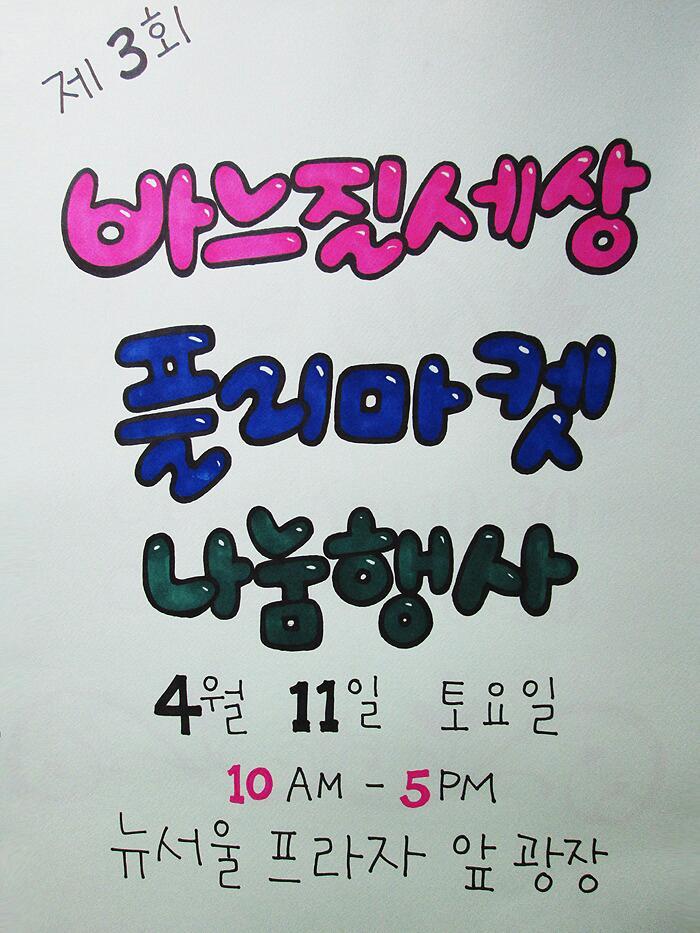 제 3회
바느질세상
플리마켓
나눔행사
4월 11일 토요일
10 AM - 5 PM
뉴서울 프라자 앞 광장